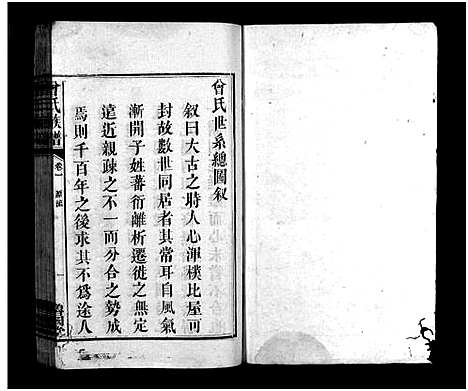 曾氏世系總圖叙
叙曰大古之時人心渾樸比屋可
封故數世同居者其常耳自風氣
漸開子姓蕃衍離析遷徙之無定
遠近親疎之不一而分合之勢成
焉則千百年之後求其不為途人
曾氏族譜
卷一
源流
一